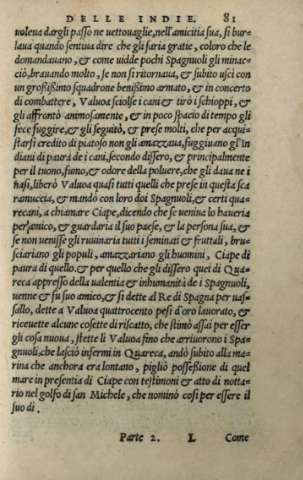 DELLE INDIE. 81
voleua dargli passo ne uettouaglie, nell'amicitia sua, si bur
laua quando sentiua dire che gli faria gratie, coloro che le
domandauano, & come uidde pochi Spagnuoli gli minac=
ciò, brauando molto, se non si ritornaua, & subito usci con
un grossissimo squadrone benissimo armato, & in concerto
di combattere, Valuoa sciolse i cani & tirò i schioppi, &
gli affrontò animosamente, & in poco spacio di tempo gli
fece fuggire, & gli seguitò, & prese molti, che per acqui=
starsi credito di piatoso non gli amazzaua, fuggiuano gl'In
diani di paura de i cani, secondo dissero, & principalmente
per il tuono, fumo, & odore della poluere, che gli daua ne i
nasi, liberò Valuoa quasi tutti quelli che prese in questa sca
ramuccia, & mandò con loro doi Spagnuoli, & certi qua=
recani, a chiamare Ciape, dicendo che se ueniua lo haueria
per amico, & guardaria il suo paese, & la persona sua, &
se non uenisse gli ruuinaria tutti i seminati & fruttali, bru=
sciariano gli populi, amazzariano gli huomini, Ciape di
paura di quello, & per quello che gli dissero quei di Qua=
reca appresso della ualentia & inhumanità de i Spagnuoli,
uenne & fu suo amico, & si dette al Re di Spagna per uas=
sallo, dette a Valuoa quattrocento pesi d'oro lauorato, &
riceuette alcune cosette di riscatto, che stimò assai per esser
gli cosa nuoua, stette li Valuoa fino che arriuorono i Spa=
gnuoli, che lasciò infermi in Quareca, andò subito alla ma=
rina che anchora era lontano, pigliò possessione di quel
mare in presentia di Ciape con testimoni & atto di notta=
rio nel golfo di san Michele, che nominò cosi per essere il
suo di.
Parte 2. L Come